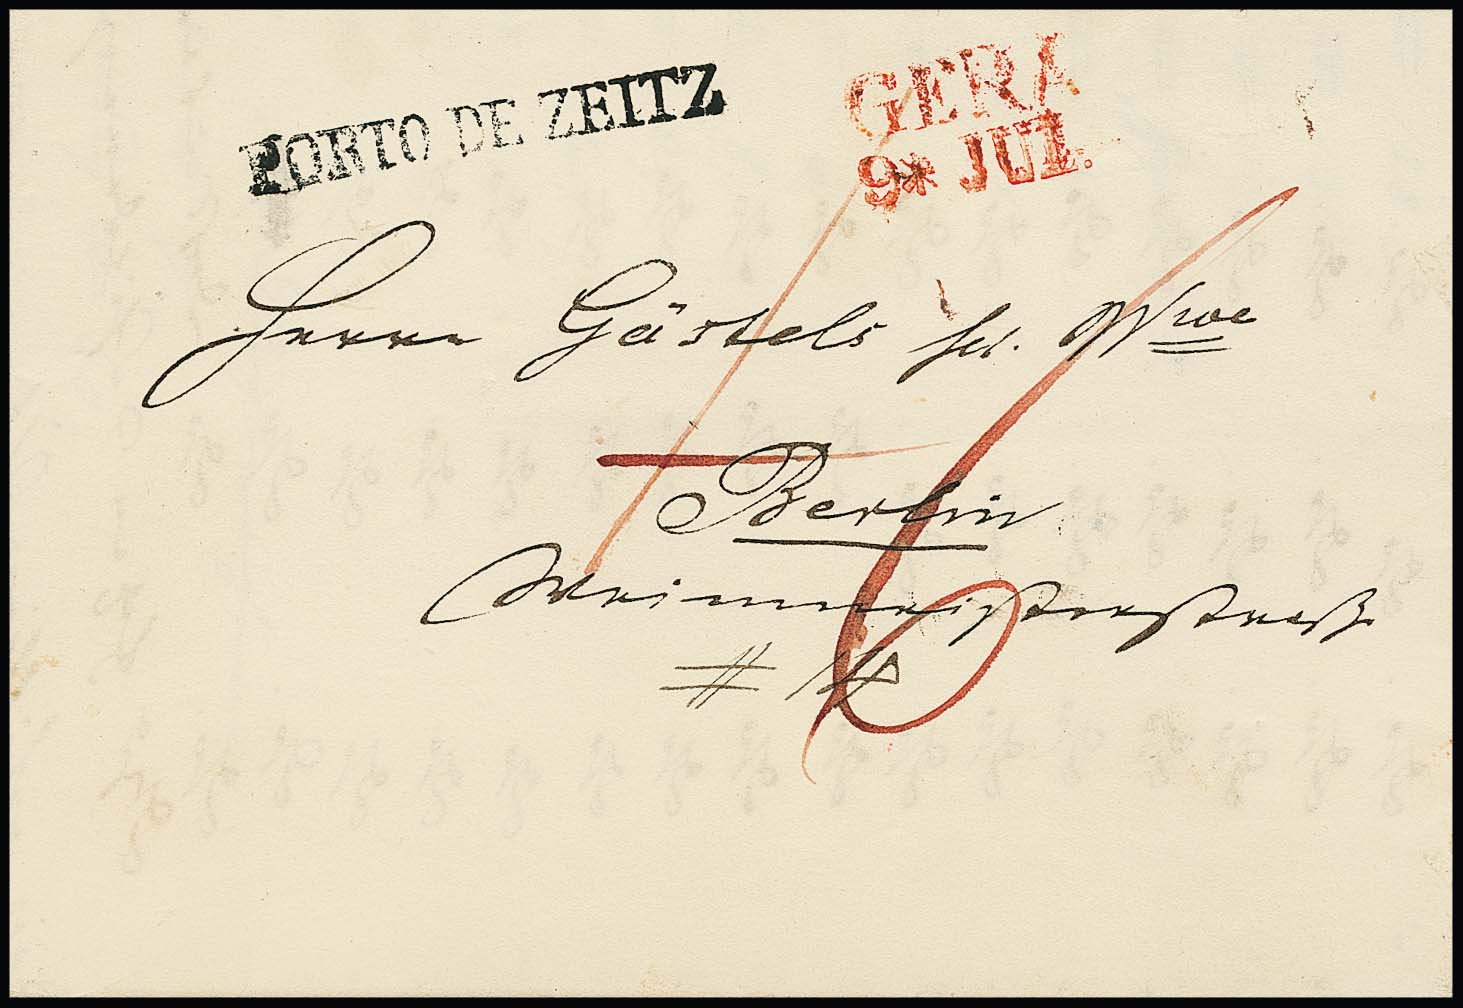 PORTO DE ZEITZ
GERA
9* JUL.
Herrn Gästels sel. Wwe
Berlin
Weinmeisterstraße
6